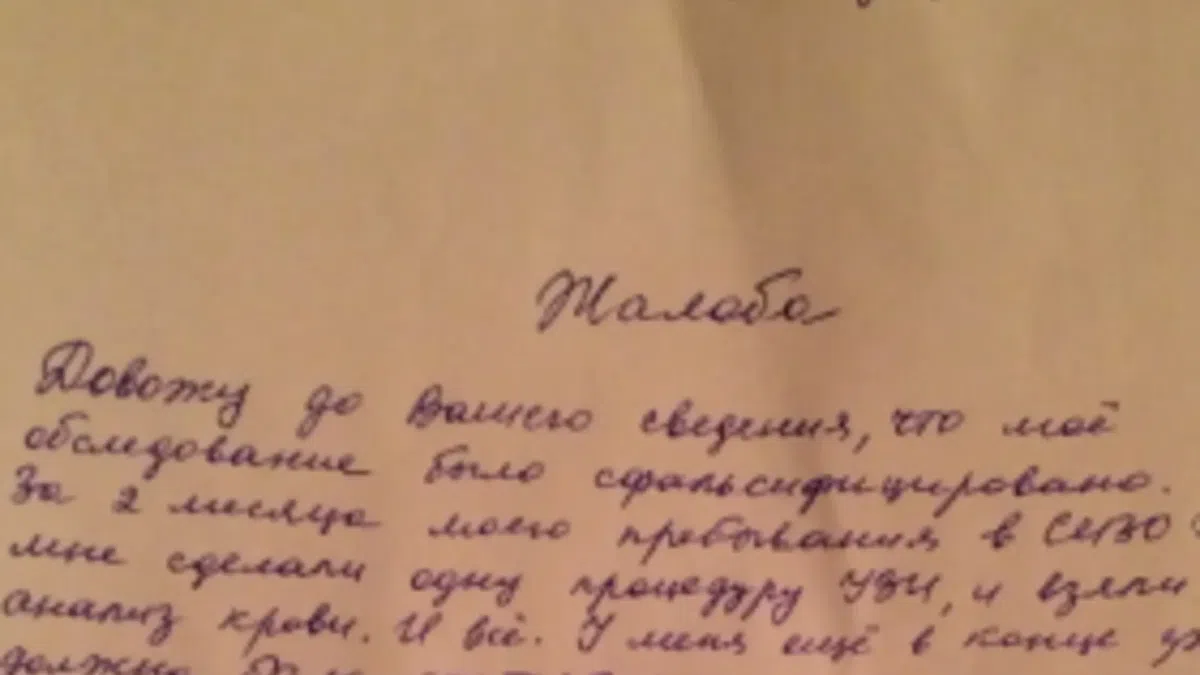 Жалоба
Довожу до Вашего сведения, что моё
обследование было сфальсифицировано.
За 2 месяца моего пребывания в СИЗО
мне сделали одну процедуру УЗИ, и взяли
анализ крови. И всё. У меня ещё в конце
должно